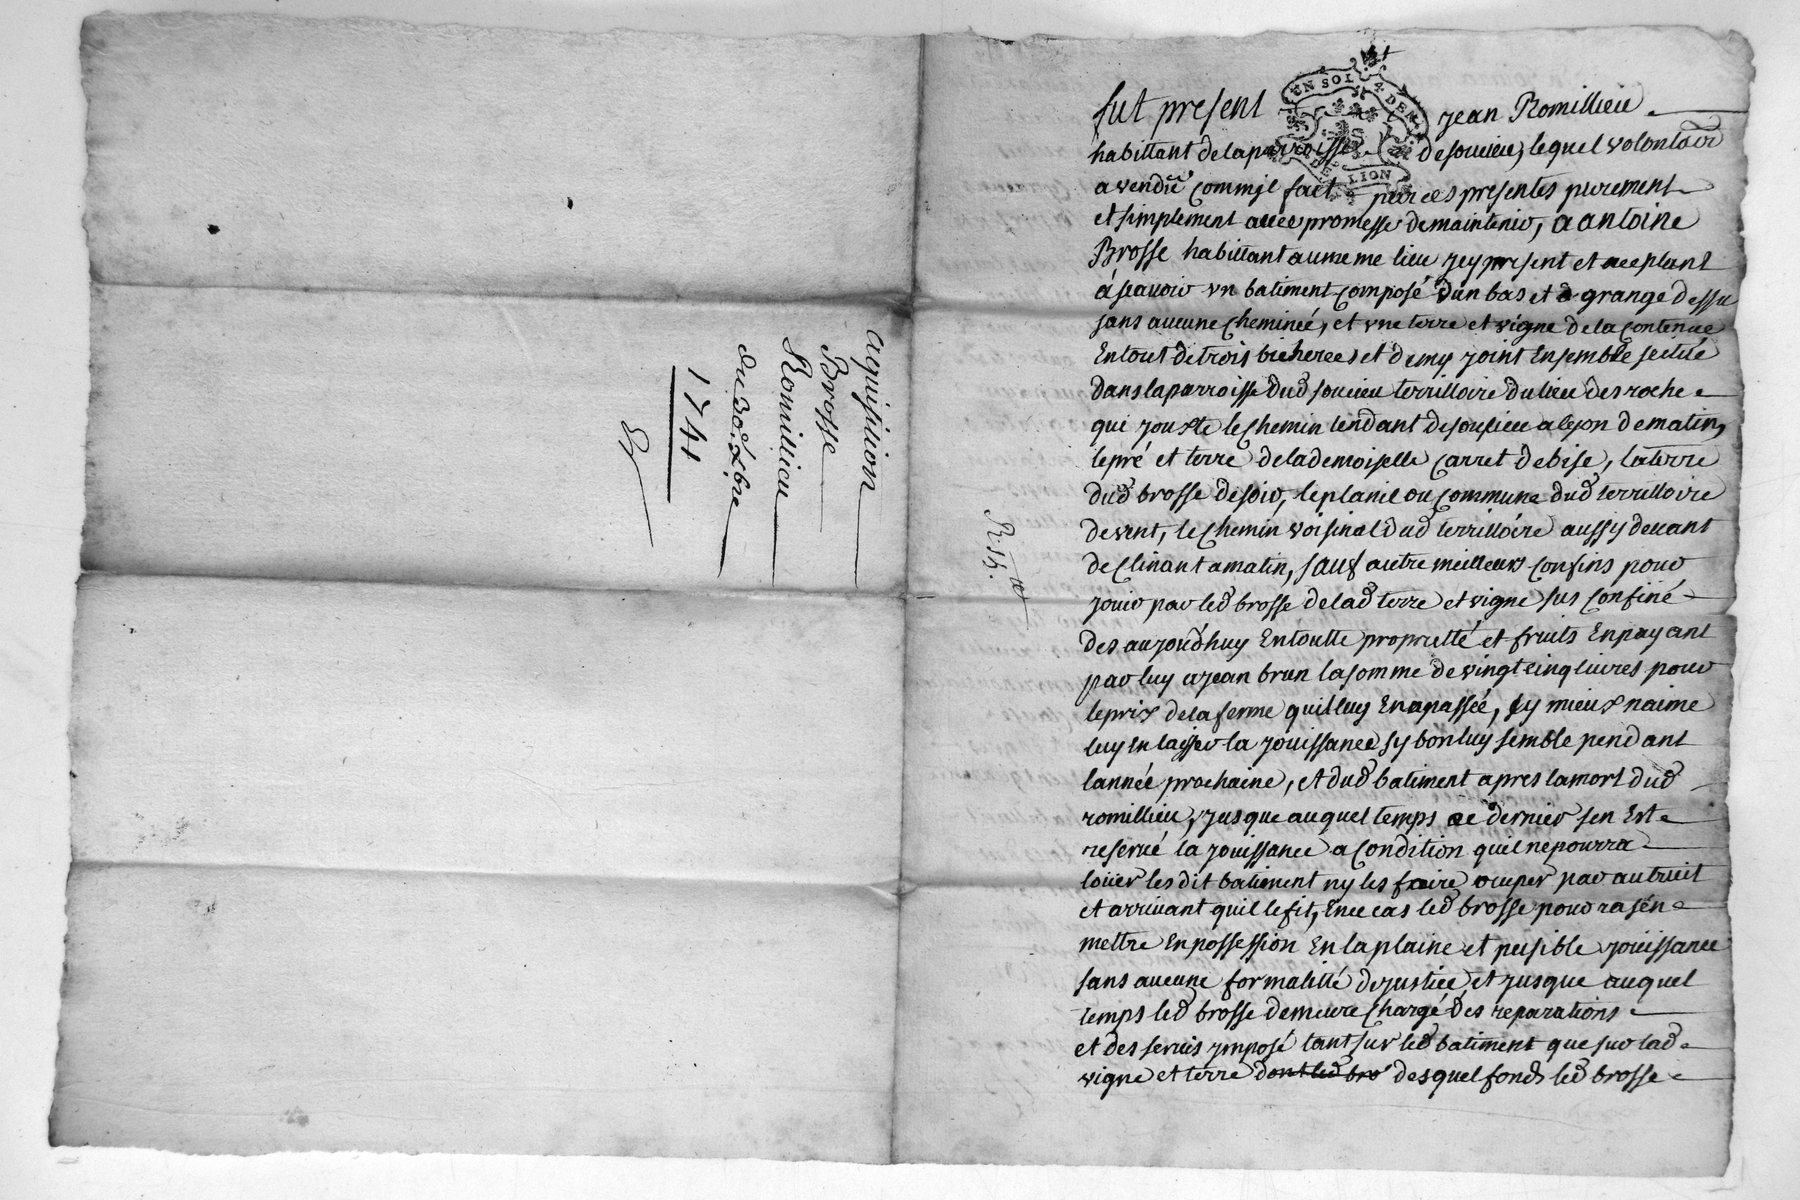 aquisition
Brosse
Romillieu
du 30e. xbre
1741
R. 15.
UN SOL 4 DEN
LION
fut present jean Romillieu
habittant de la parroisse de soucieu, lequel volontair
a vendu comm jl fait par ces presentes purement
et simplement avec promesse de maintenir, a antoine
Brosse habittant au meme lieu jcy present et aceptant
á scavoir vn batiment composé d'un bas et grange dessu
sans aucune cheminée, et vne terre et vigne de la contenue
En tout de trois bicherees et demy joint Ensemble scitué
dans la parroisse dud soucieu terrilloire du lieu des roche
qui jouxte le chemin tendant de soucieu a lyon de matin,
le pré et terre de la demoiselle carret de bise, la terre
dud brosse de soir, le planil ou commune dud terrilloire
de vent, le chemin voisinal dud terrilloire aussy devant
declinant a matin, sauf autre meilleurs confins pour
jouir par led brosse de lad terre et vigne sus confiné
des aujourdhuy En toutte proprietté et fruits En payant
par luy a jean brun la somme de vingt cinq livres pour
le prix de la ferme quil luy En a passée, sy mieux naime
luy en laisser la jouissance sy bon luy semble pendant
lannée prochaine, et dud batiment apres la mort dud
romillieu, jusque auquel temps ce dernier sen Est
reservé la jouissance a condition quil ne pourra
loüer les dit batiment ny les faire ocuper par autruit
et arrivant quil le fit, En ce cas led brosse pourra sén
mettre En possession En la plaine et pesible jouissance
sans aucune formalitté de justice et jusque auquel
temps led brosse demeure chargé des reparations
et des servis jmposé tant sur led batiment que sur lad
vigne et terre dont led bro desquel fonds led brosse